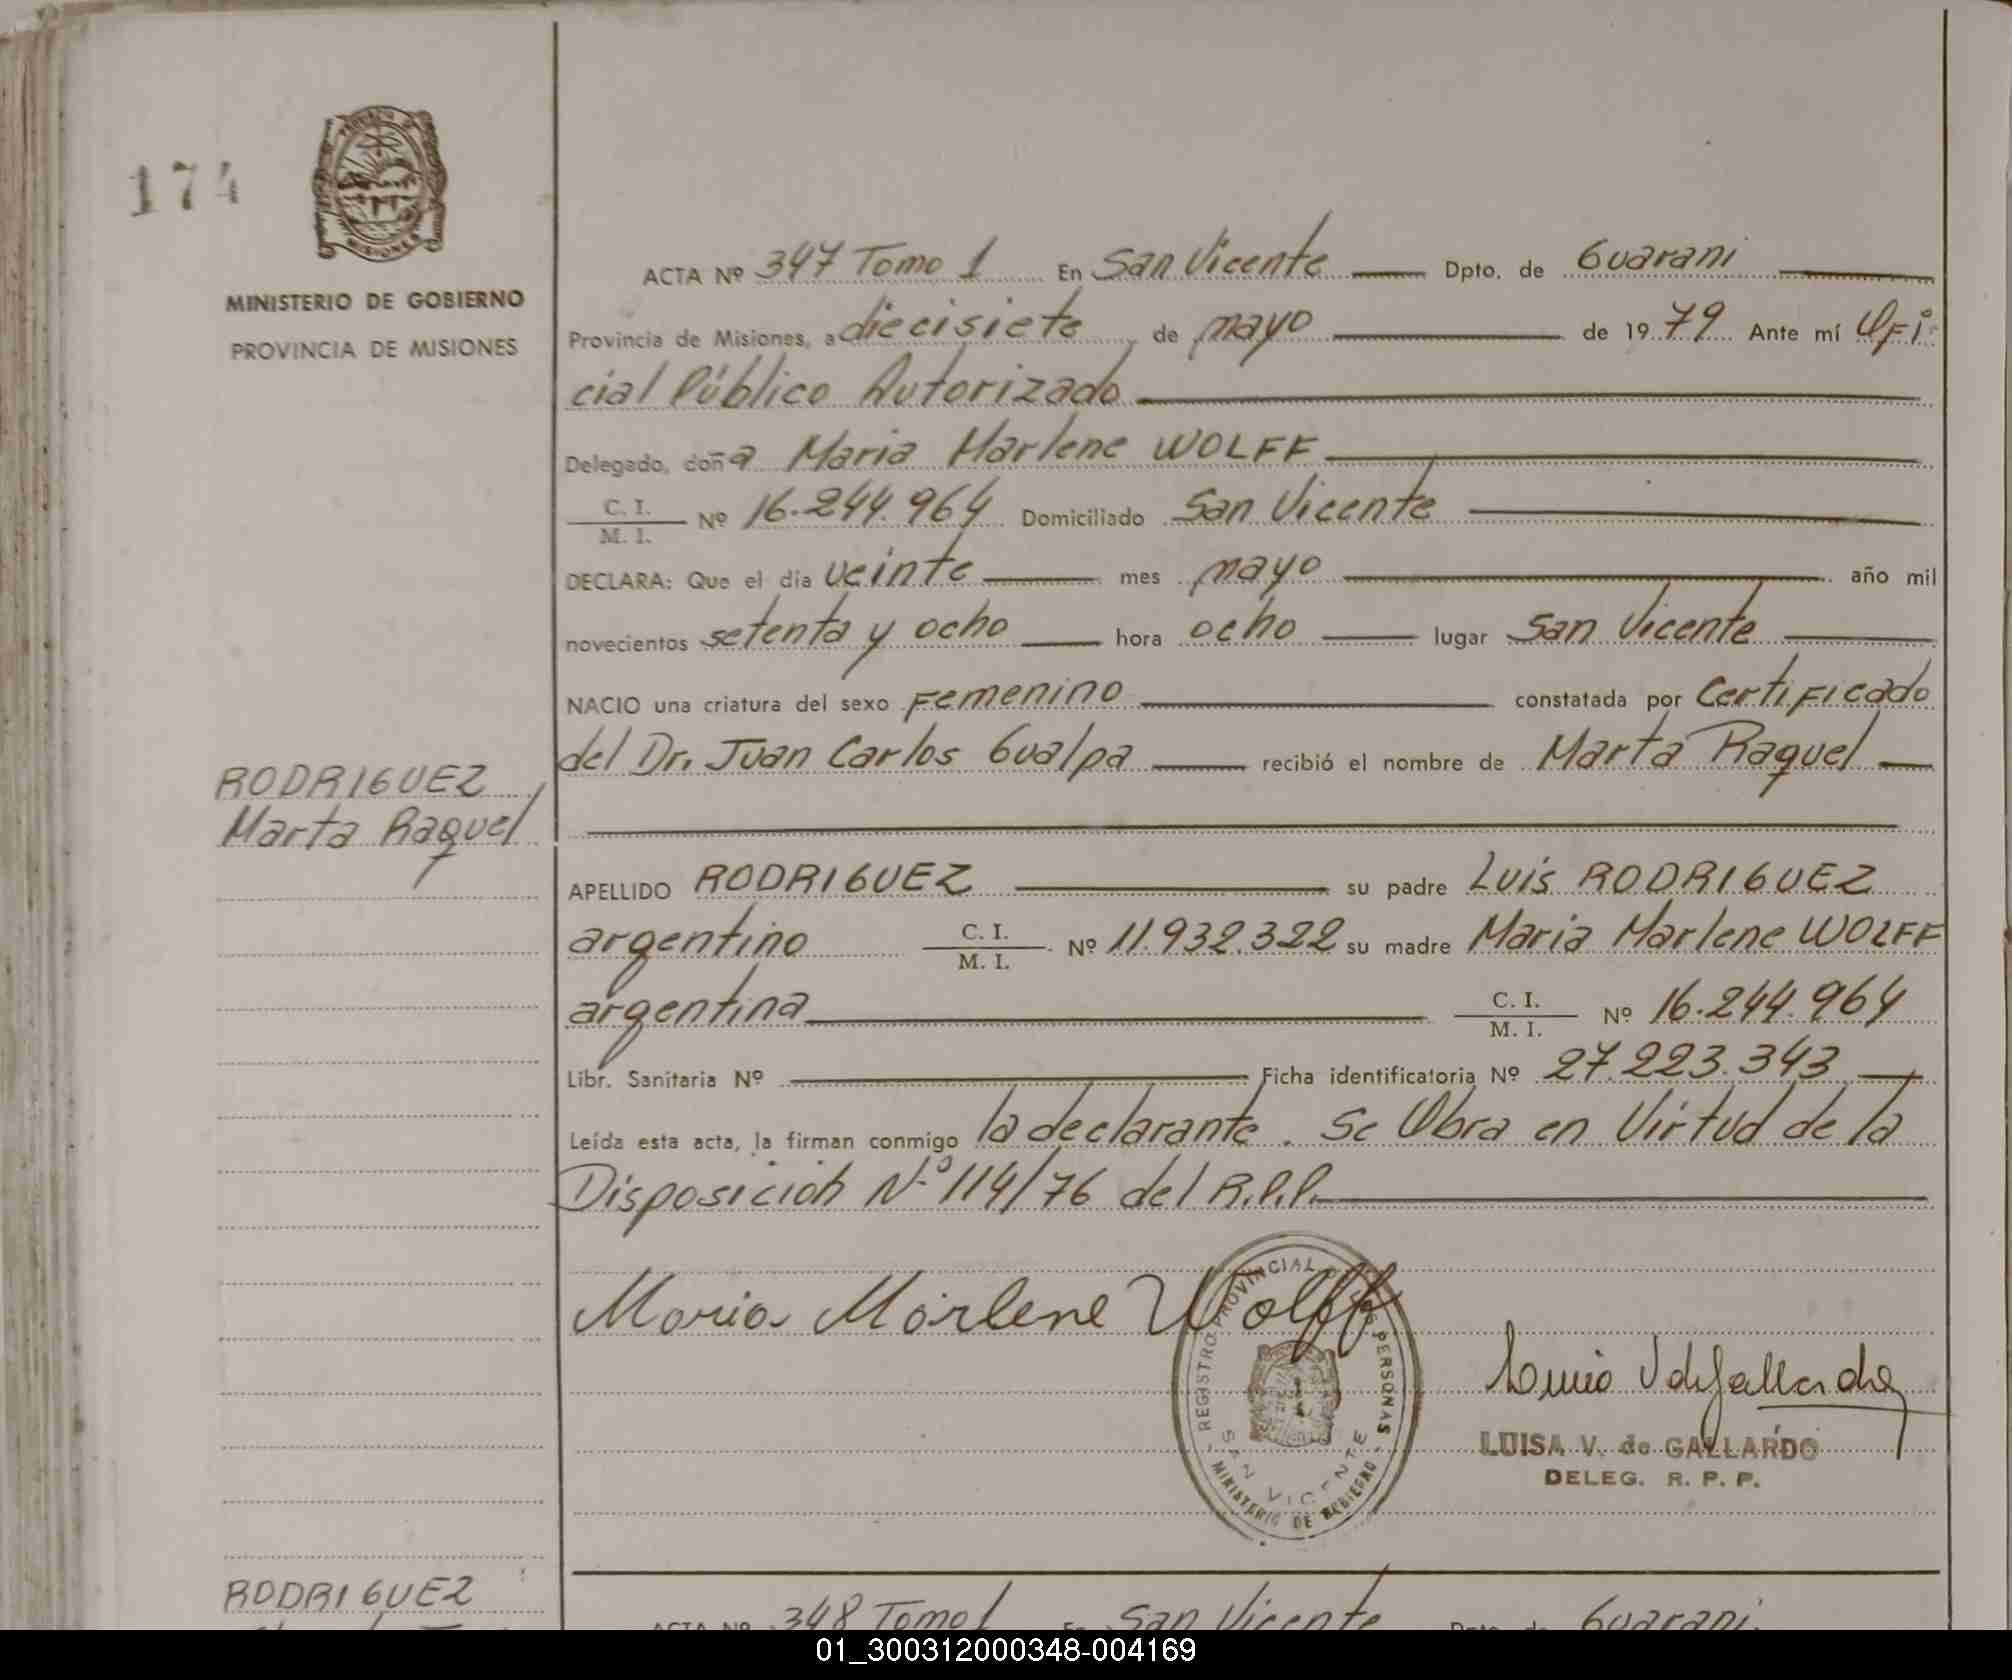 174
PROVINCIA DE
MISIONES
MINISTERIO DE GOBIERNO
PROVINCIA DE MISIONES
ACTA Nº 347 Tomo 1 En San Vicente Dpto. de Guarani
Provincia de Misiones, a diecisiete de mayo de 1979 Ante mí Ofi-
cial Público Autorizado
Delegado, doña Maria Marlene WOLFF
C. I.
M. I. Nº 16.244.964 Domiciliado San Vicente
DECLARA: Que el día veinte mes mayo año mil
novecientos setenta y ocho hora ocho lugar San Vicente
NACIO una criatura del sexo Femenino constatada por Certificado
del Dr. Juan Carlos Gualpa recibió el nombre de Marta Raquel
RODRIGUEZ
Marta Raquel
APELLIDO RODRIGUEZ su padre Luis RODRIGUEZ
argentino C. I. M. I. Nº 11.932.322 su madre Maria Marlene WOLFF
argentina C. I. M. I. Nº 16.244.964
Libr. Sanitaria Nº Ficha identificatoria Nº 27.223.343
Leída esta acta, la firman conmigo la declarante. Se Obra en Virtud de la
Disposición Nº 114/76 del R.P.P.
Maria Marlene Wolff
REGISTRO PROVINCIAL DE LAS PERSONAS
SAN VICENTE
MINISTERIO DE GOBIERNO
Luisa V de Gallardo
LUISA V. de GALLARDO
DELEG. R. P. P.
RODRIGUEZ
ACTA Nº 348 Tomo 1 En San Vicente Dpto. de Guarani
01_300312000348-004169